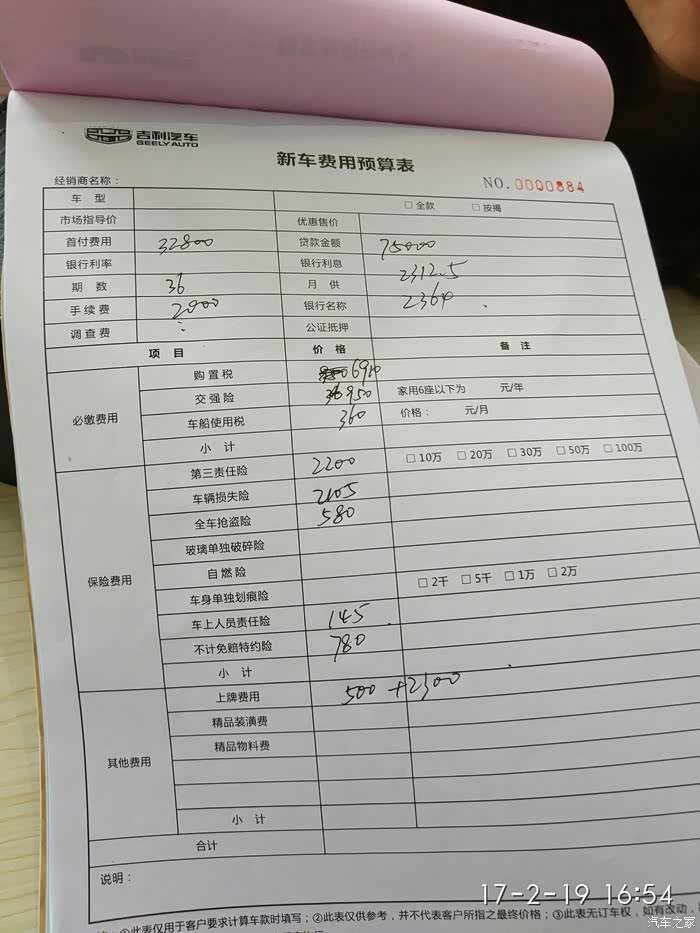 吉利汽车
GEELY AUTO
新车费用预算表
NO.0000884
经销商名称：
车 型 □ 全款 □ 按揭
市场指导价 优惠售价
首付费用 32800 贷款金额 75000
银行利率 银行利息 2312.5
期 数 36 月 供 2364
手续费 2000 银行名称
调查费 公证抵押
项 目 价 格 备 注
必缴费用
购置税 6910
交强险 950 家用6座以下为 元/年
车船使用税 360 价格： 元/月
小 计
保险费用
第三责任险 2200 □ 10万 □ 20万 □ 30万 □ 50万 □ 100万
车辆损失险 2105
全车抢盗险 580
玻璃单独破碎险
自燃险
车身单独划痕险 □ 2千 □ 5千 □ 1万 □ 2万
车上人员责任险 145
不计免赔特约险 780
小 计
其他费用
上牌费用 500 +2300
精品装潢费
精品物料费
小 计
合计
说明：
①此表仅用于客户要求计算车款时填写；②此表仅供参考，并不代表客户所指之最终价格；③此表无订车权，如有改动，
17-2-19 16:54
汽车之家